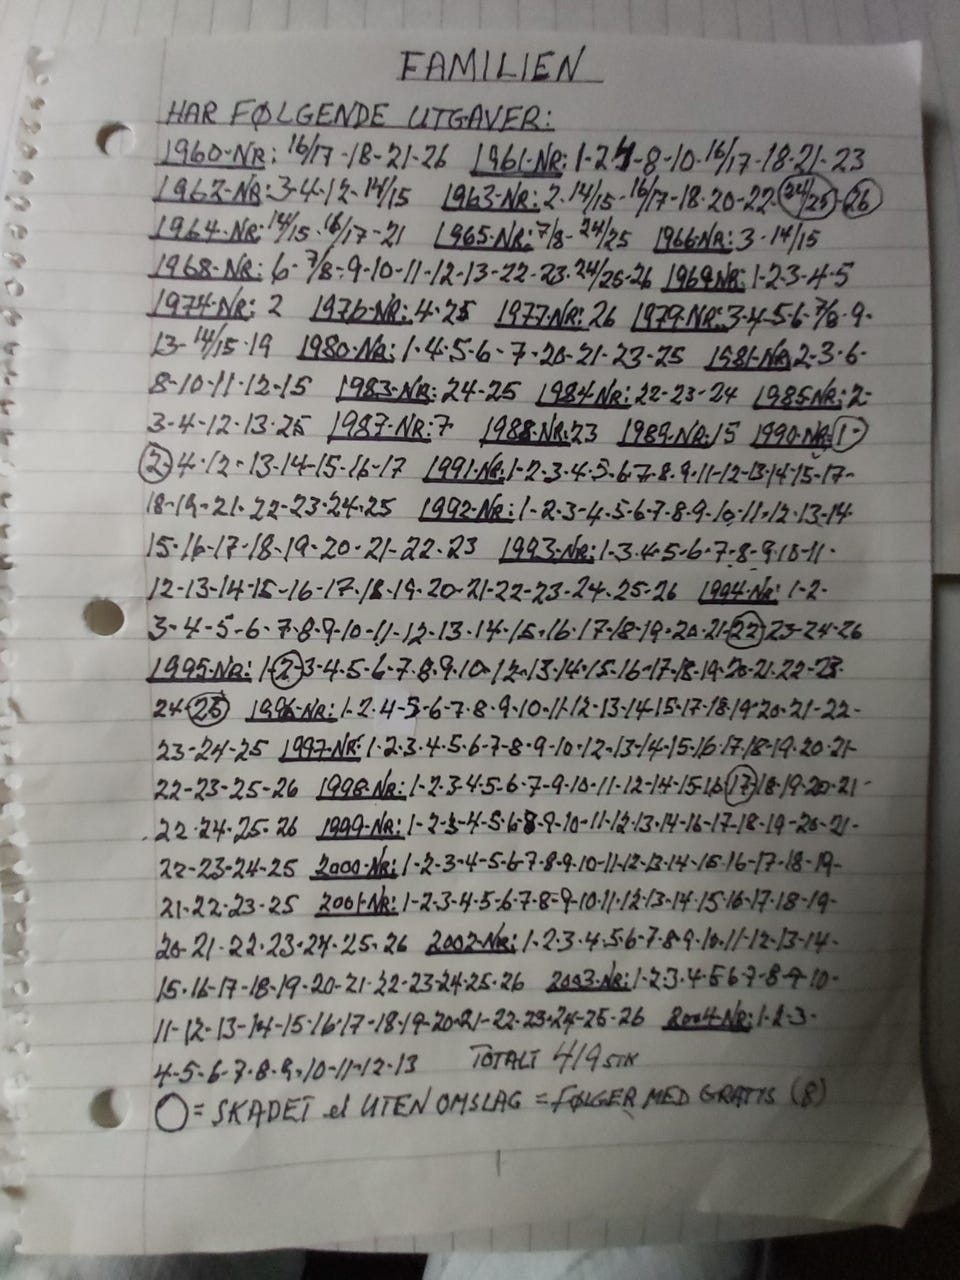 FAMILIEN
HAR FØLGENDE UTGAVER:
1960-NR: 16/17-18-21-26 1961-NR: 1-2-4-8-10-16/17-18-21-23
1962-NR: 3-4-12-14/15 1963-NR: 2-14/15-16/17-18-20-22-24/25-26
1964-NR: 14/15-16/17-21 1965-NR: 7/8-24/25 1966-NR: 3-14/15
1968-NR: 6-7/8-9-10-11-12-13-22-23-24/25-26 1969-NR: 1-2-3-4-5
1974-NR: 2 1976-NR: 4-25 1977-NR: 26 1979-NR: 3-4-5-6-7/8-9-
13-14/15-19 1980-NR: 1-4-5-6-7-20-21-23-25 1981-NR: 2-3-6-
8-10-11-12-15 1983-NR: 24-25 1984-NR: 22-23-24 1985-NR: 2-
3-4-12-13-25 1987-NR: 7 1988-NR: 23 1989-NR: 15 1990-NR: 1-
2-4-12-13-14-15-16-17 1991-NR: 1-2-3-4-5-6-7-8-9-11-12-13-14-15-17-
18-19-21-22-23-24-25 1992-NR: 1-2-3-4-5-6-7-8-9-10-11-12-13-14
15-16-17-18-19-20-21-22-23 1993-NR: 1-3-4-5-6-7-8-9-10-11-
12-13-14-15-16-17-18-19-20-21-22-23-24-25-26 1994-NR: 1-2-
3-4-5-6-7-8-9-10-11-12-13-14-15-16-17-18-19-20-21-22-23-24-26
1995-NR: 1-2-3-4-5-6-7-8-9-10-12-13-14-15-16-17-18-19-20-21-22-23-
24-25 1996-NR: 1-2-4-5-6-7-8-9-10-11-12-13-14-15-17-18-19-20-21-22-
23-24-25 1997-NR: 1-2-3-4-5-6-7-8-9-10-12-13-14-15-16-17-18-19-20-21-
22-23-25-26 1998-NR: 1-2-3-4-5-6-7-9-10-11-12-14-15-16-17-18-19-20-21-
22-24-25-26 1999-NR: 1-2-3-4-5-6-8-9-10-11-12-13-14-16-17-18-19-20-21-
22-23-24-25 2000-NR: 1-2-3-4-5-6-7-8-9-10-11-12-13-14-15-16-17-18-19-
21-22-23-25 2001-NR: 1-2-3-4-5-6-7-8-9-10-11-12-13-14-15-16-17-18-19-
20-21-22-23-24-25-26 2002-NR: 1-2-3-4-5-6-7-8-9-10-11-12-13-14-
15-16-17-18-19-20-21-22-23-24-25-26 2003-NR: 1-2-3-4-5-6-7-8-9-10-
11-12-13-14-15-16-17-18-19-20-21-22-23-24-25-26 2004-NR: 1-2-3-
4-5-6-7-8-9-10-11-12-13 TOTALT 419 STK
= SKADET el UTEN OMSLAG = FØLGER MED GRATIS (8)